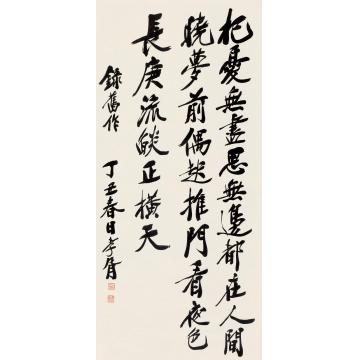 杞憂無盡思無邊都在人間
曉夢前偶起推門看夜色
長庚流燄正橫天
錄舊作 丁丑春日孝胥